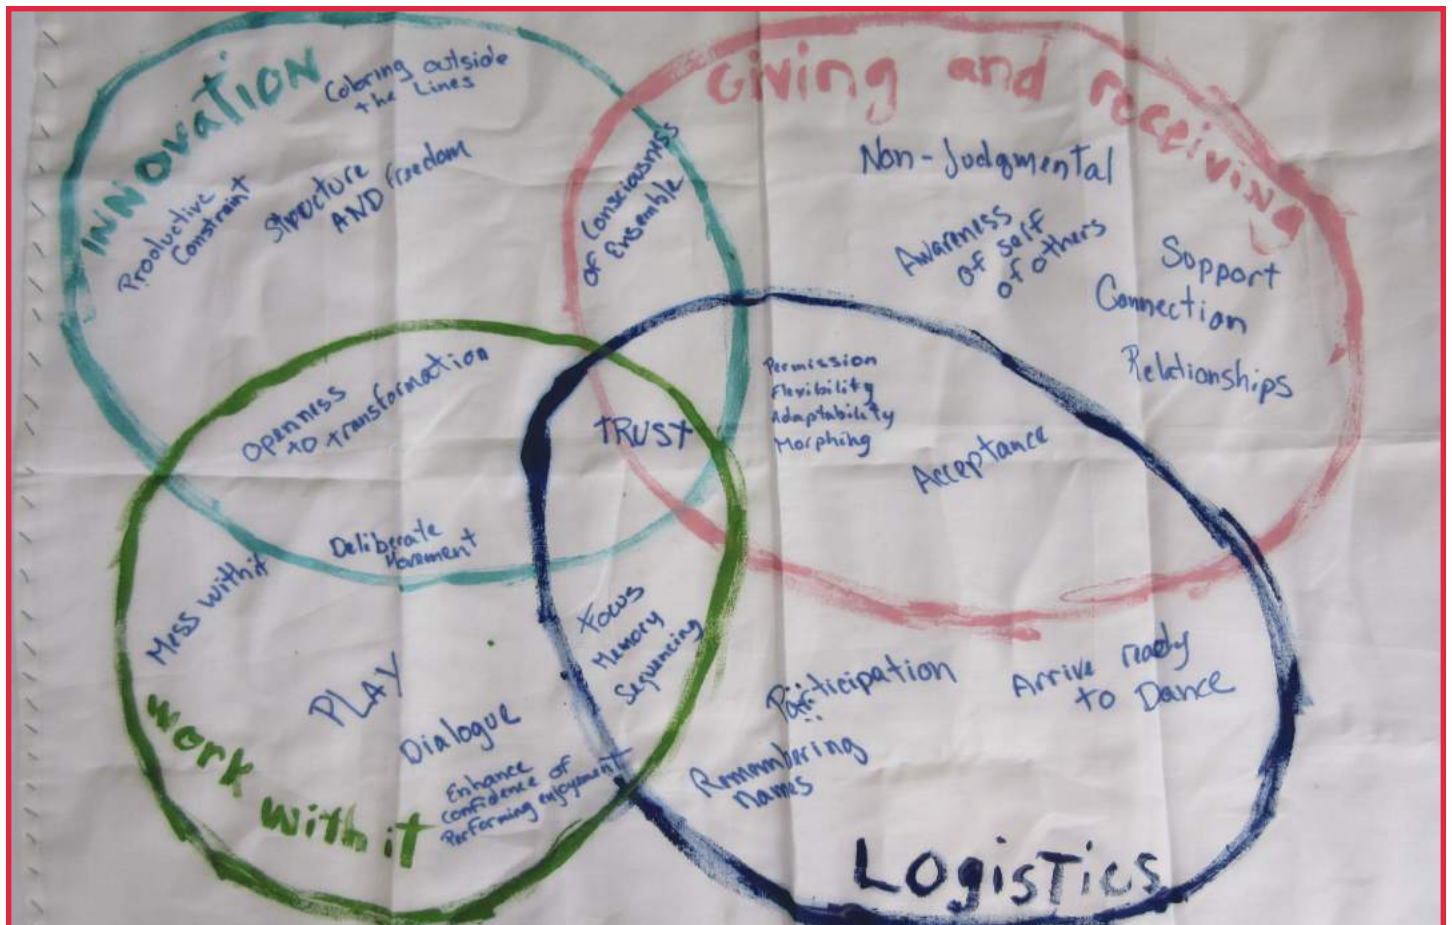 INNOVATION
Coloring outside
the Lines
Productive
Constraint
Structure
AND freedom
Consciousness
of Ensemble
Giving and receiving
Non-Judgmental
Awareness
of self
of others
Support
Connection
Relationships
Openness
to transformation
TRUST
Permission
Flexibility
Adaptability
Morphing
Acceptance
Deliberate
Movement
Mess with it
PLAY
Dialogue
Enhance
confidence of
Performing enjoyment
work with it
Focus
Memory
Sequencing
Participation
Arrive ready
to Dance
Remembering
names
LOGISTICS